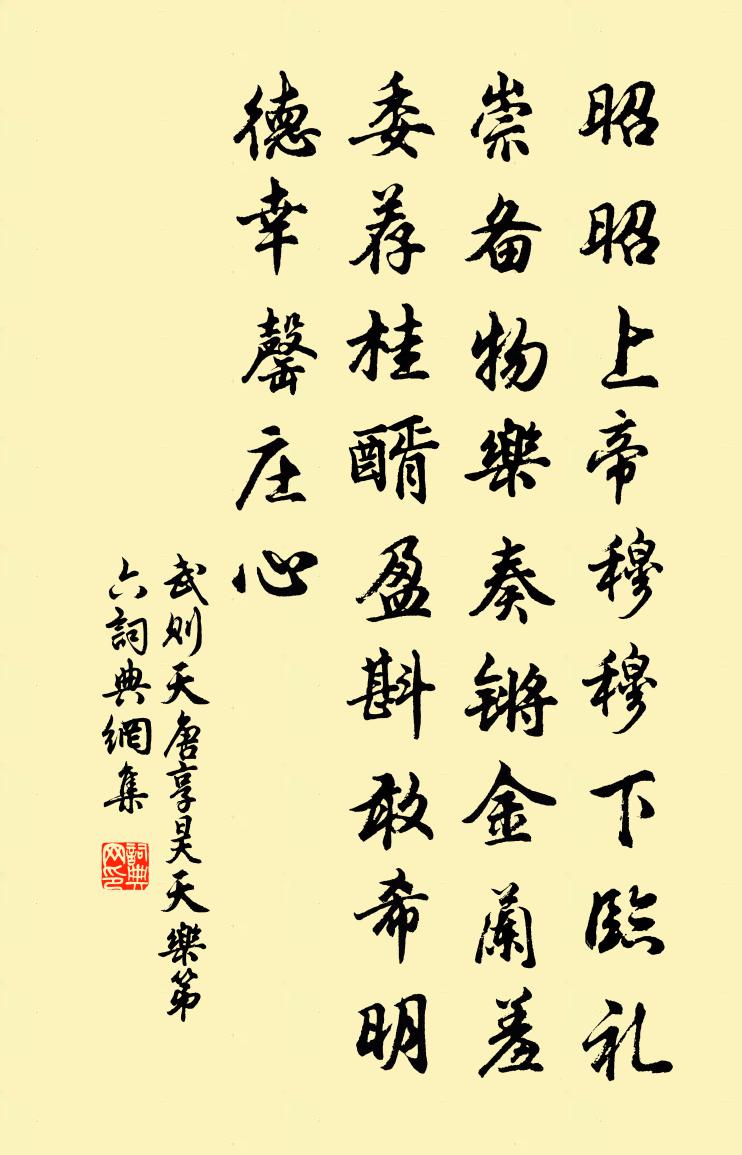 昭昭上帝穆穆下臨礼
崇备物樂奏锵金蘭羞
委荐桂醑盈斟敢希明
德幸馨庄心
武则天唐享昊天樂第
六詞典網集
詞典
网印